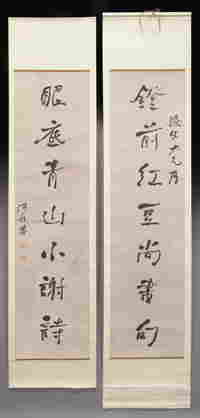 鐙前紅豆尚書句
眼底青山小謝詩